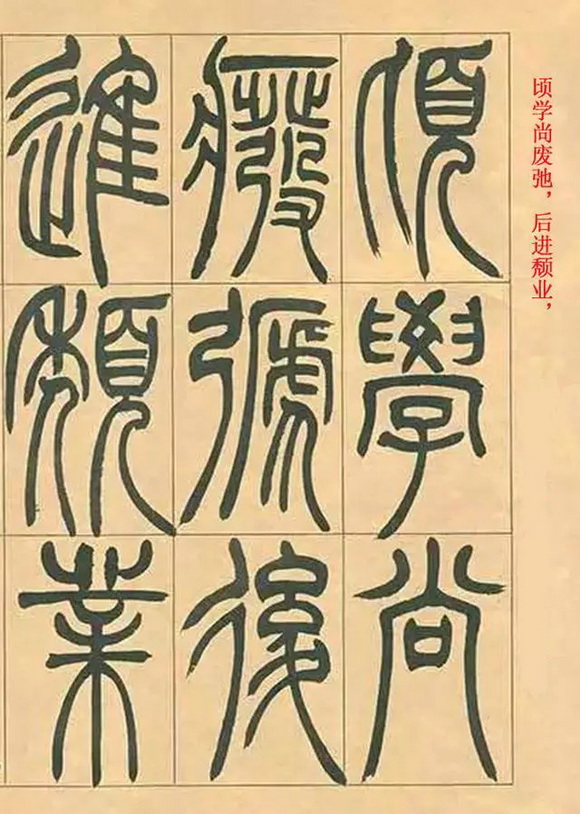 頃學尚
廢弛後
進頹業
顷学尚废弛，后进颓业，